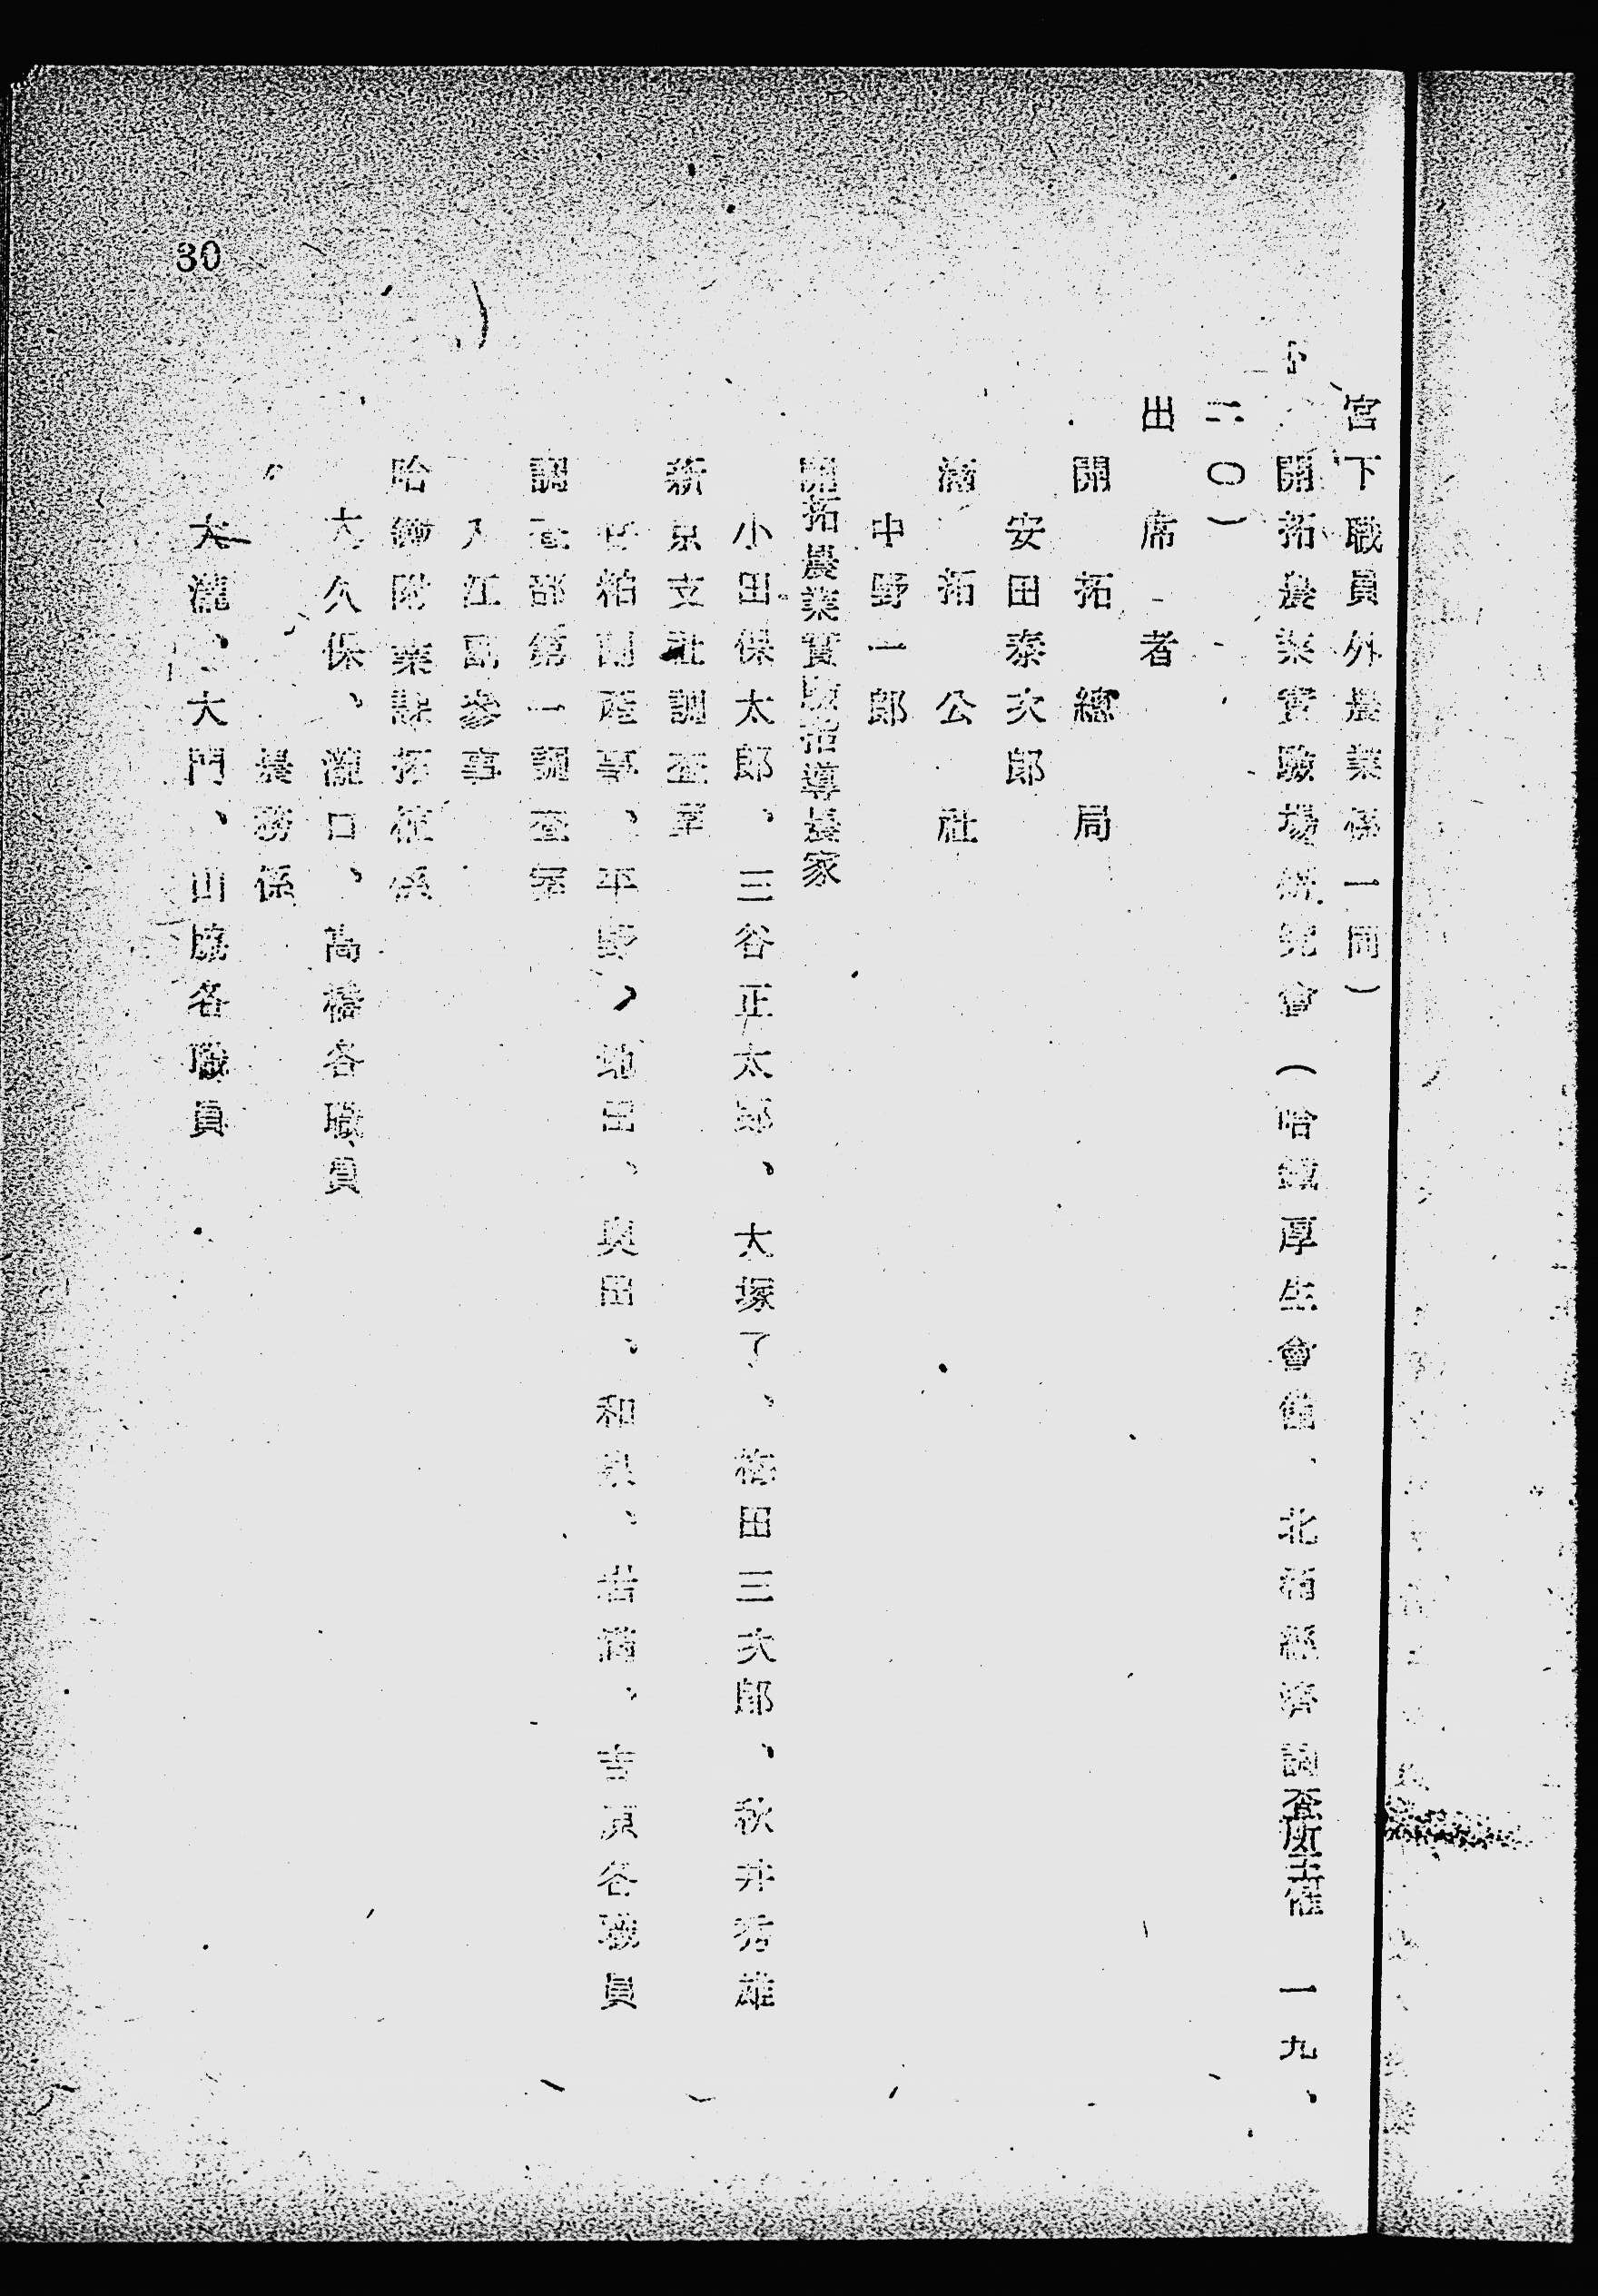 宮下職員外農業係一同)
開拓農業實驗場研究會(哈鐵厚生會舘、北滿經濟調査所主催 一九、
二〇)
出席者
開拓總局
安田泰次郎
滿拓公社
中野一郎
開拓農業實驗指導農家
小田保太郎、三谷正太郎、大塚了、梅田三次郎、秋井秀雄
新京支社調査室
副産事、平野、奥田、和泉、吉原各職員
調査部第一調査室
江島參事
哈鐵附業課拓植係
大久保、瀧口、高橋各職員
〃 農務係
大瀧、大門、山處各職員
30